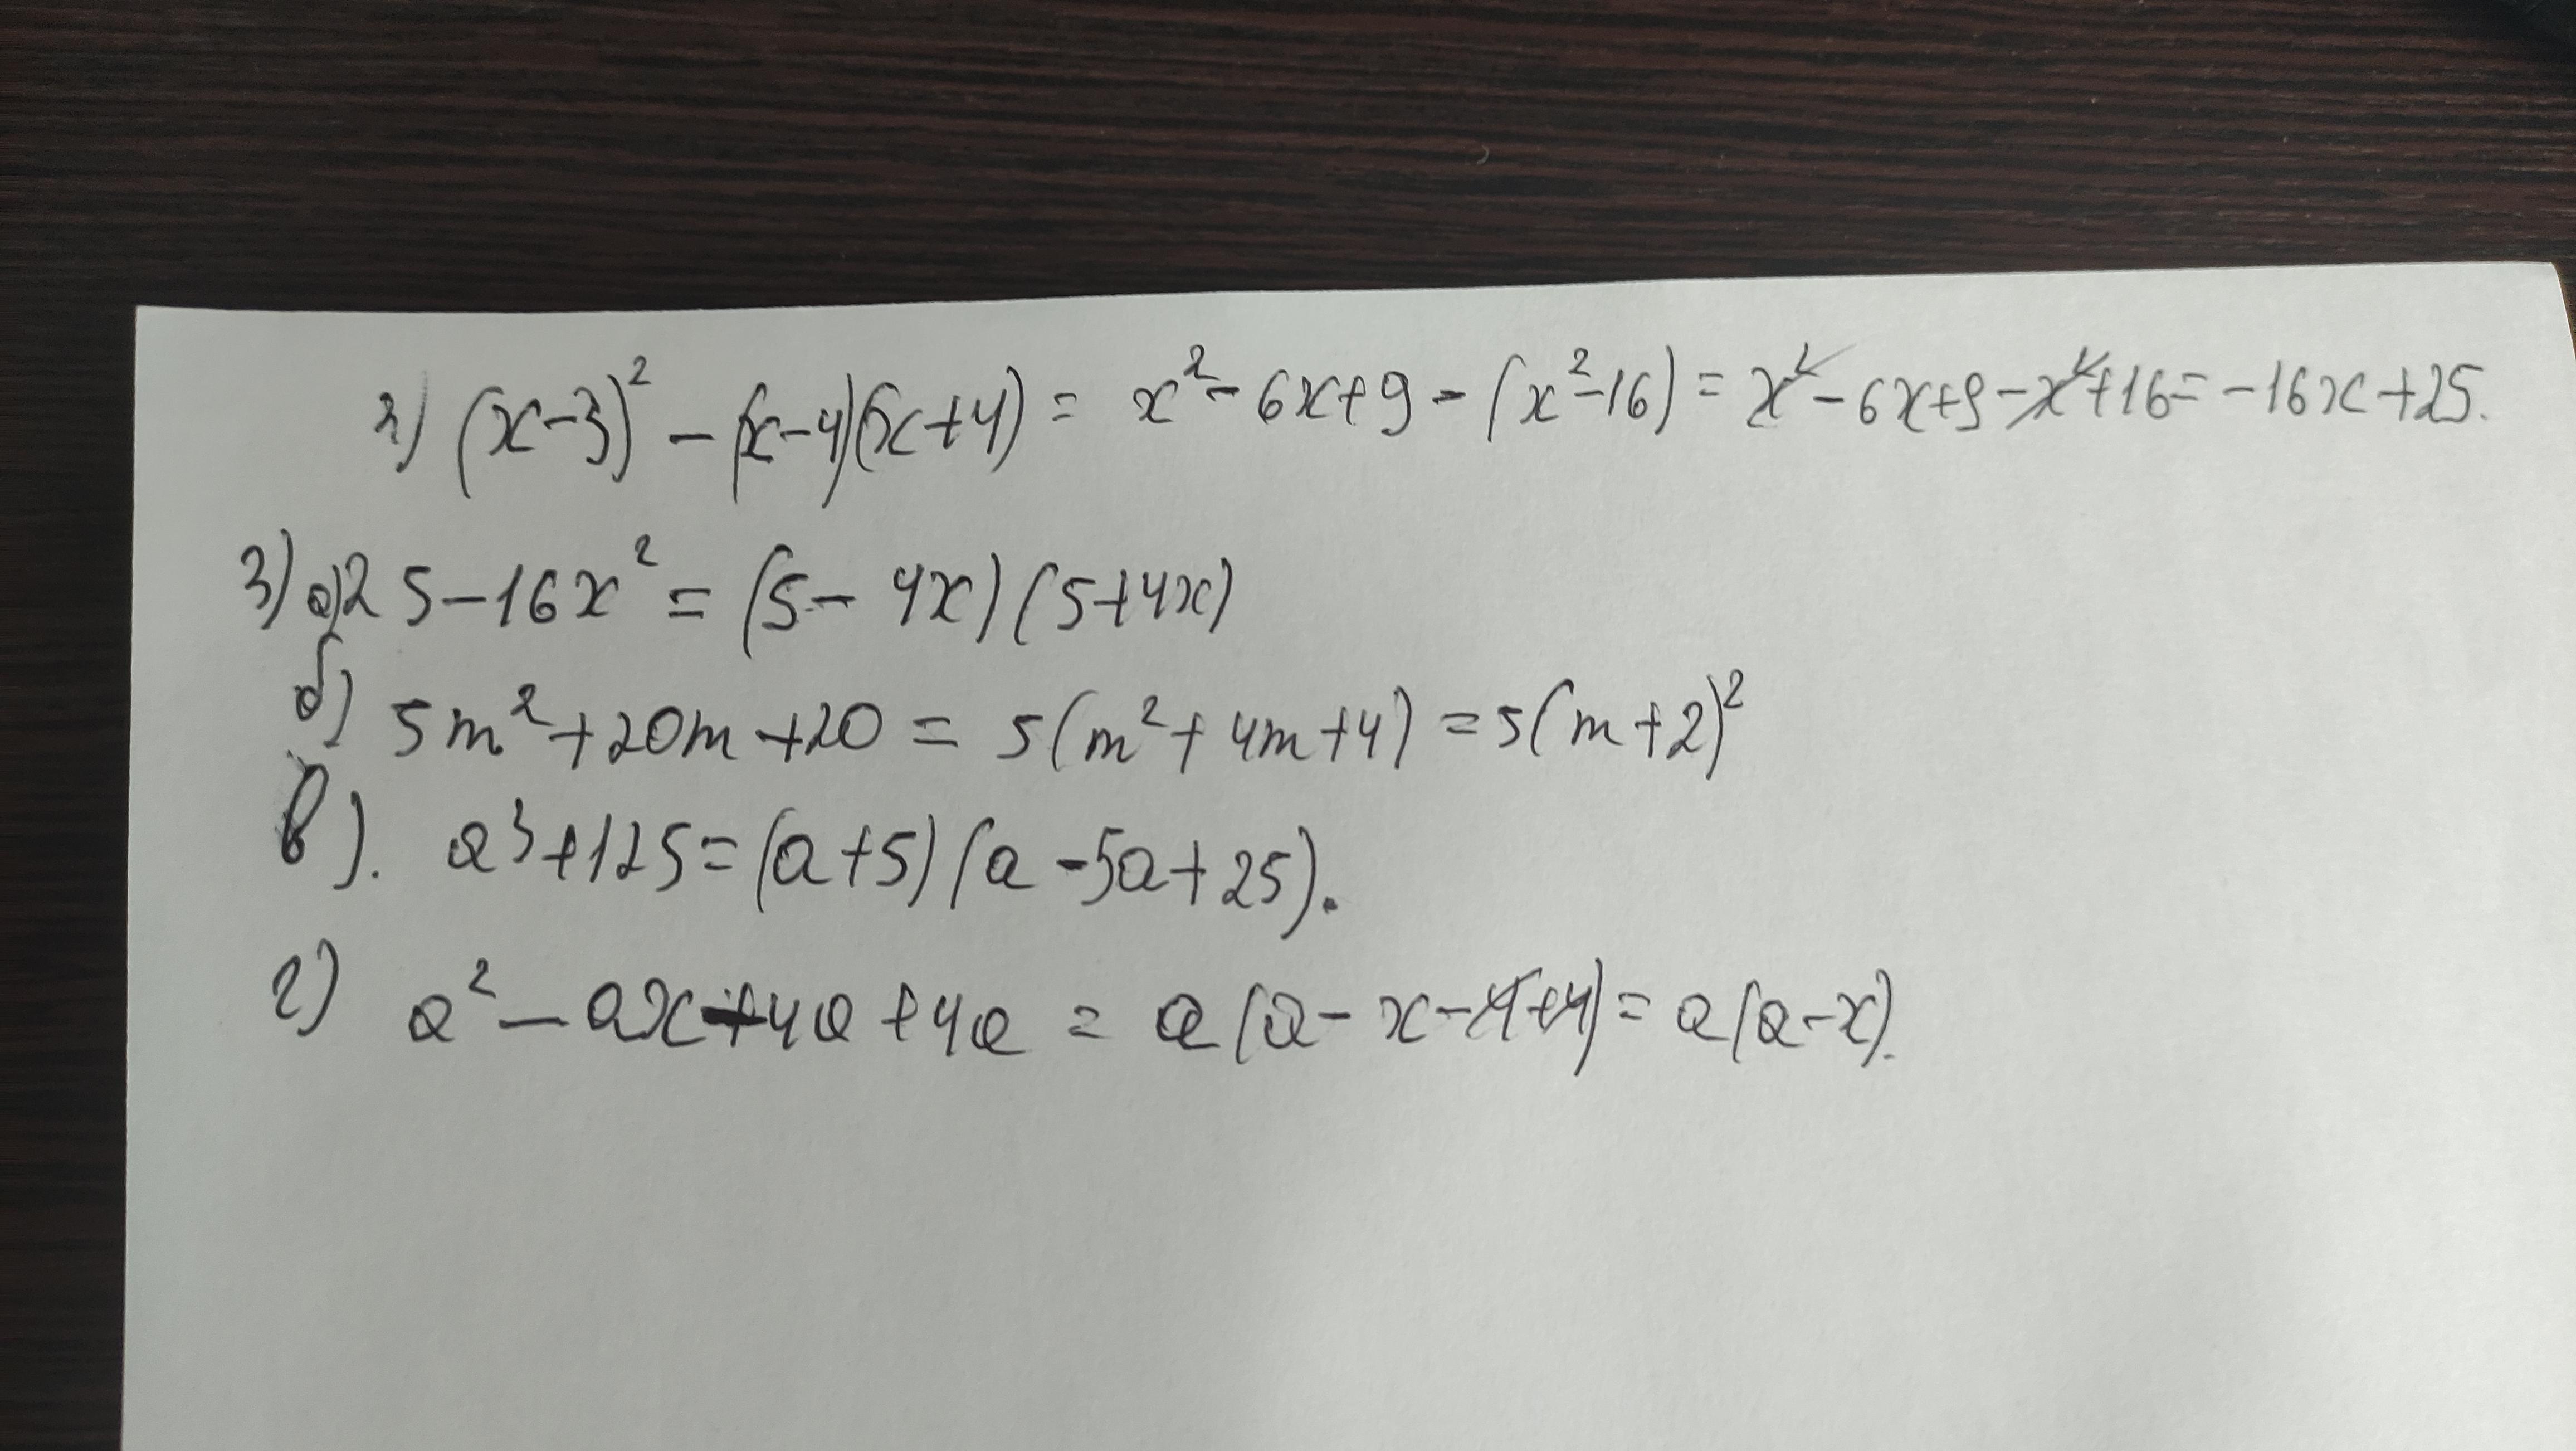 2) (x-3)² - (x-4)(x+4) = x² - 6x+9 - (x²-16) = x² - 6x+9 - x²+16 = -16x+25.
3) а) 25-16x² = (5- 4x)(5+4x)
б) 5m²+20m+20 = 5(m²+4m+4) = 5(m+2)²
в). a³+125=(a+5)(a-5a+25).
г) a² - ax-4a+4a = a(a-x-4+4) = a(a-x).